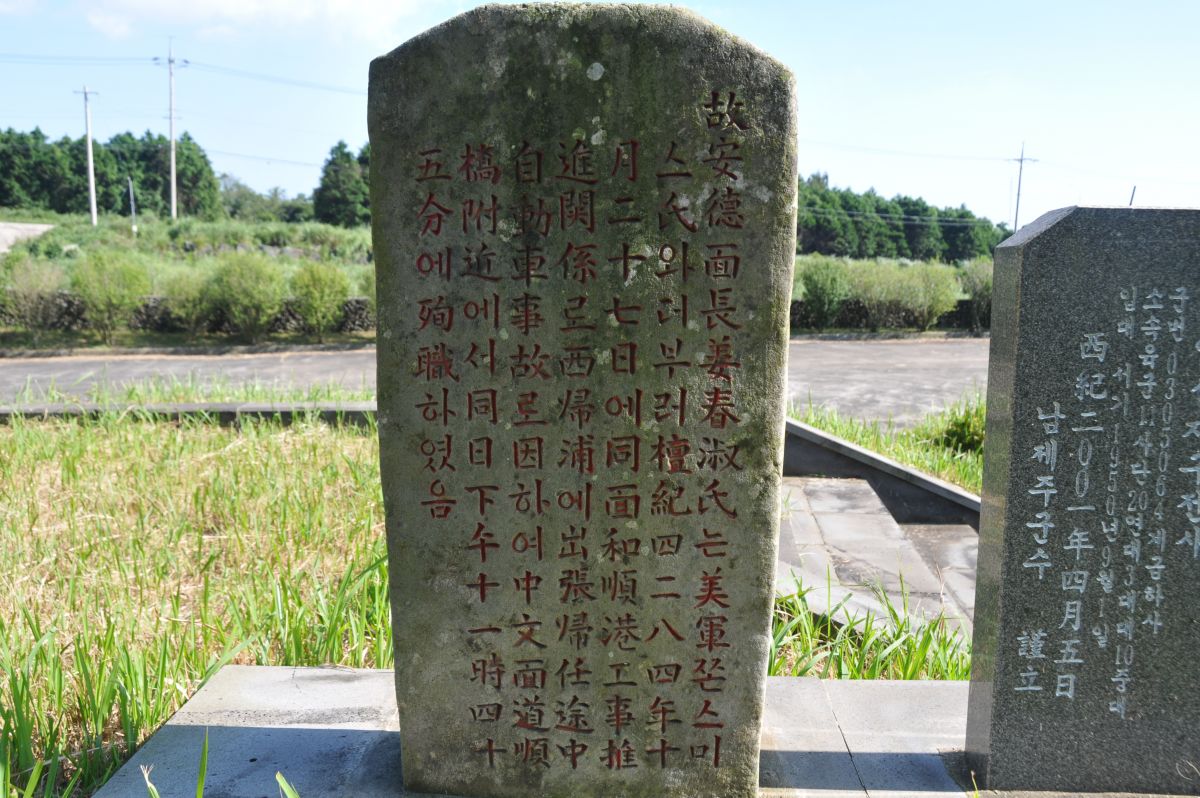 故安德面長姜春淑氏는美軍죤스미
스氏와더부러檀紀四二八四年十
月二十七日에同面和順港工事推
進関係로西帰浦에出張帰任途中
自動車事故로因하여中文面道順
橋附近에서同日下午十一時四十
五分에殉職하였음
군번 0305064 계급하사
소속육군11사단20연대3대대10중대
입대 서기 1950년9월1일
西紀二00一年四月五日
남제주군수 謹立